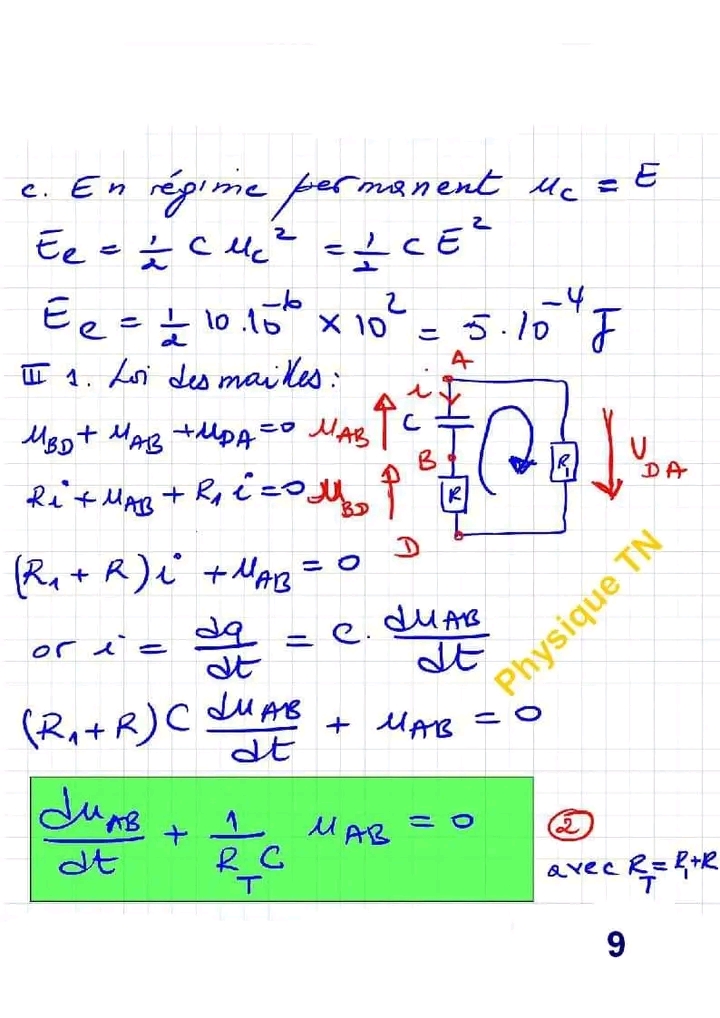 c. En régime permanent uc = E
Ee = 1/2 C uc² = 1/2 C E²
Ee = 1/2 10.10⁻⁶ × 10² = 5.10⁻⁴ J
III 1. Loi des mailles :
uBD + uAB + uDA = 0
Ri + uAB + R₁ i = 0
A
i
uAB
C
B
uBD
R
R₁
UDA
D
(R₁ + R) i + uAB = 0
or i = dq/dt = C. duAB/dt
(R₁ + R) C duAB/dt + uAB = 0
duAB/dt + 1/RTC uAB = 0
②
avec RT = R₁+R
Physique TN
9